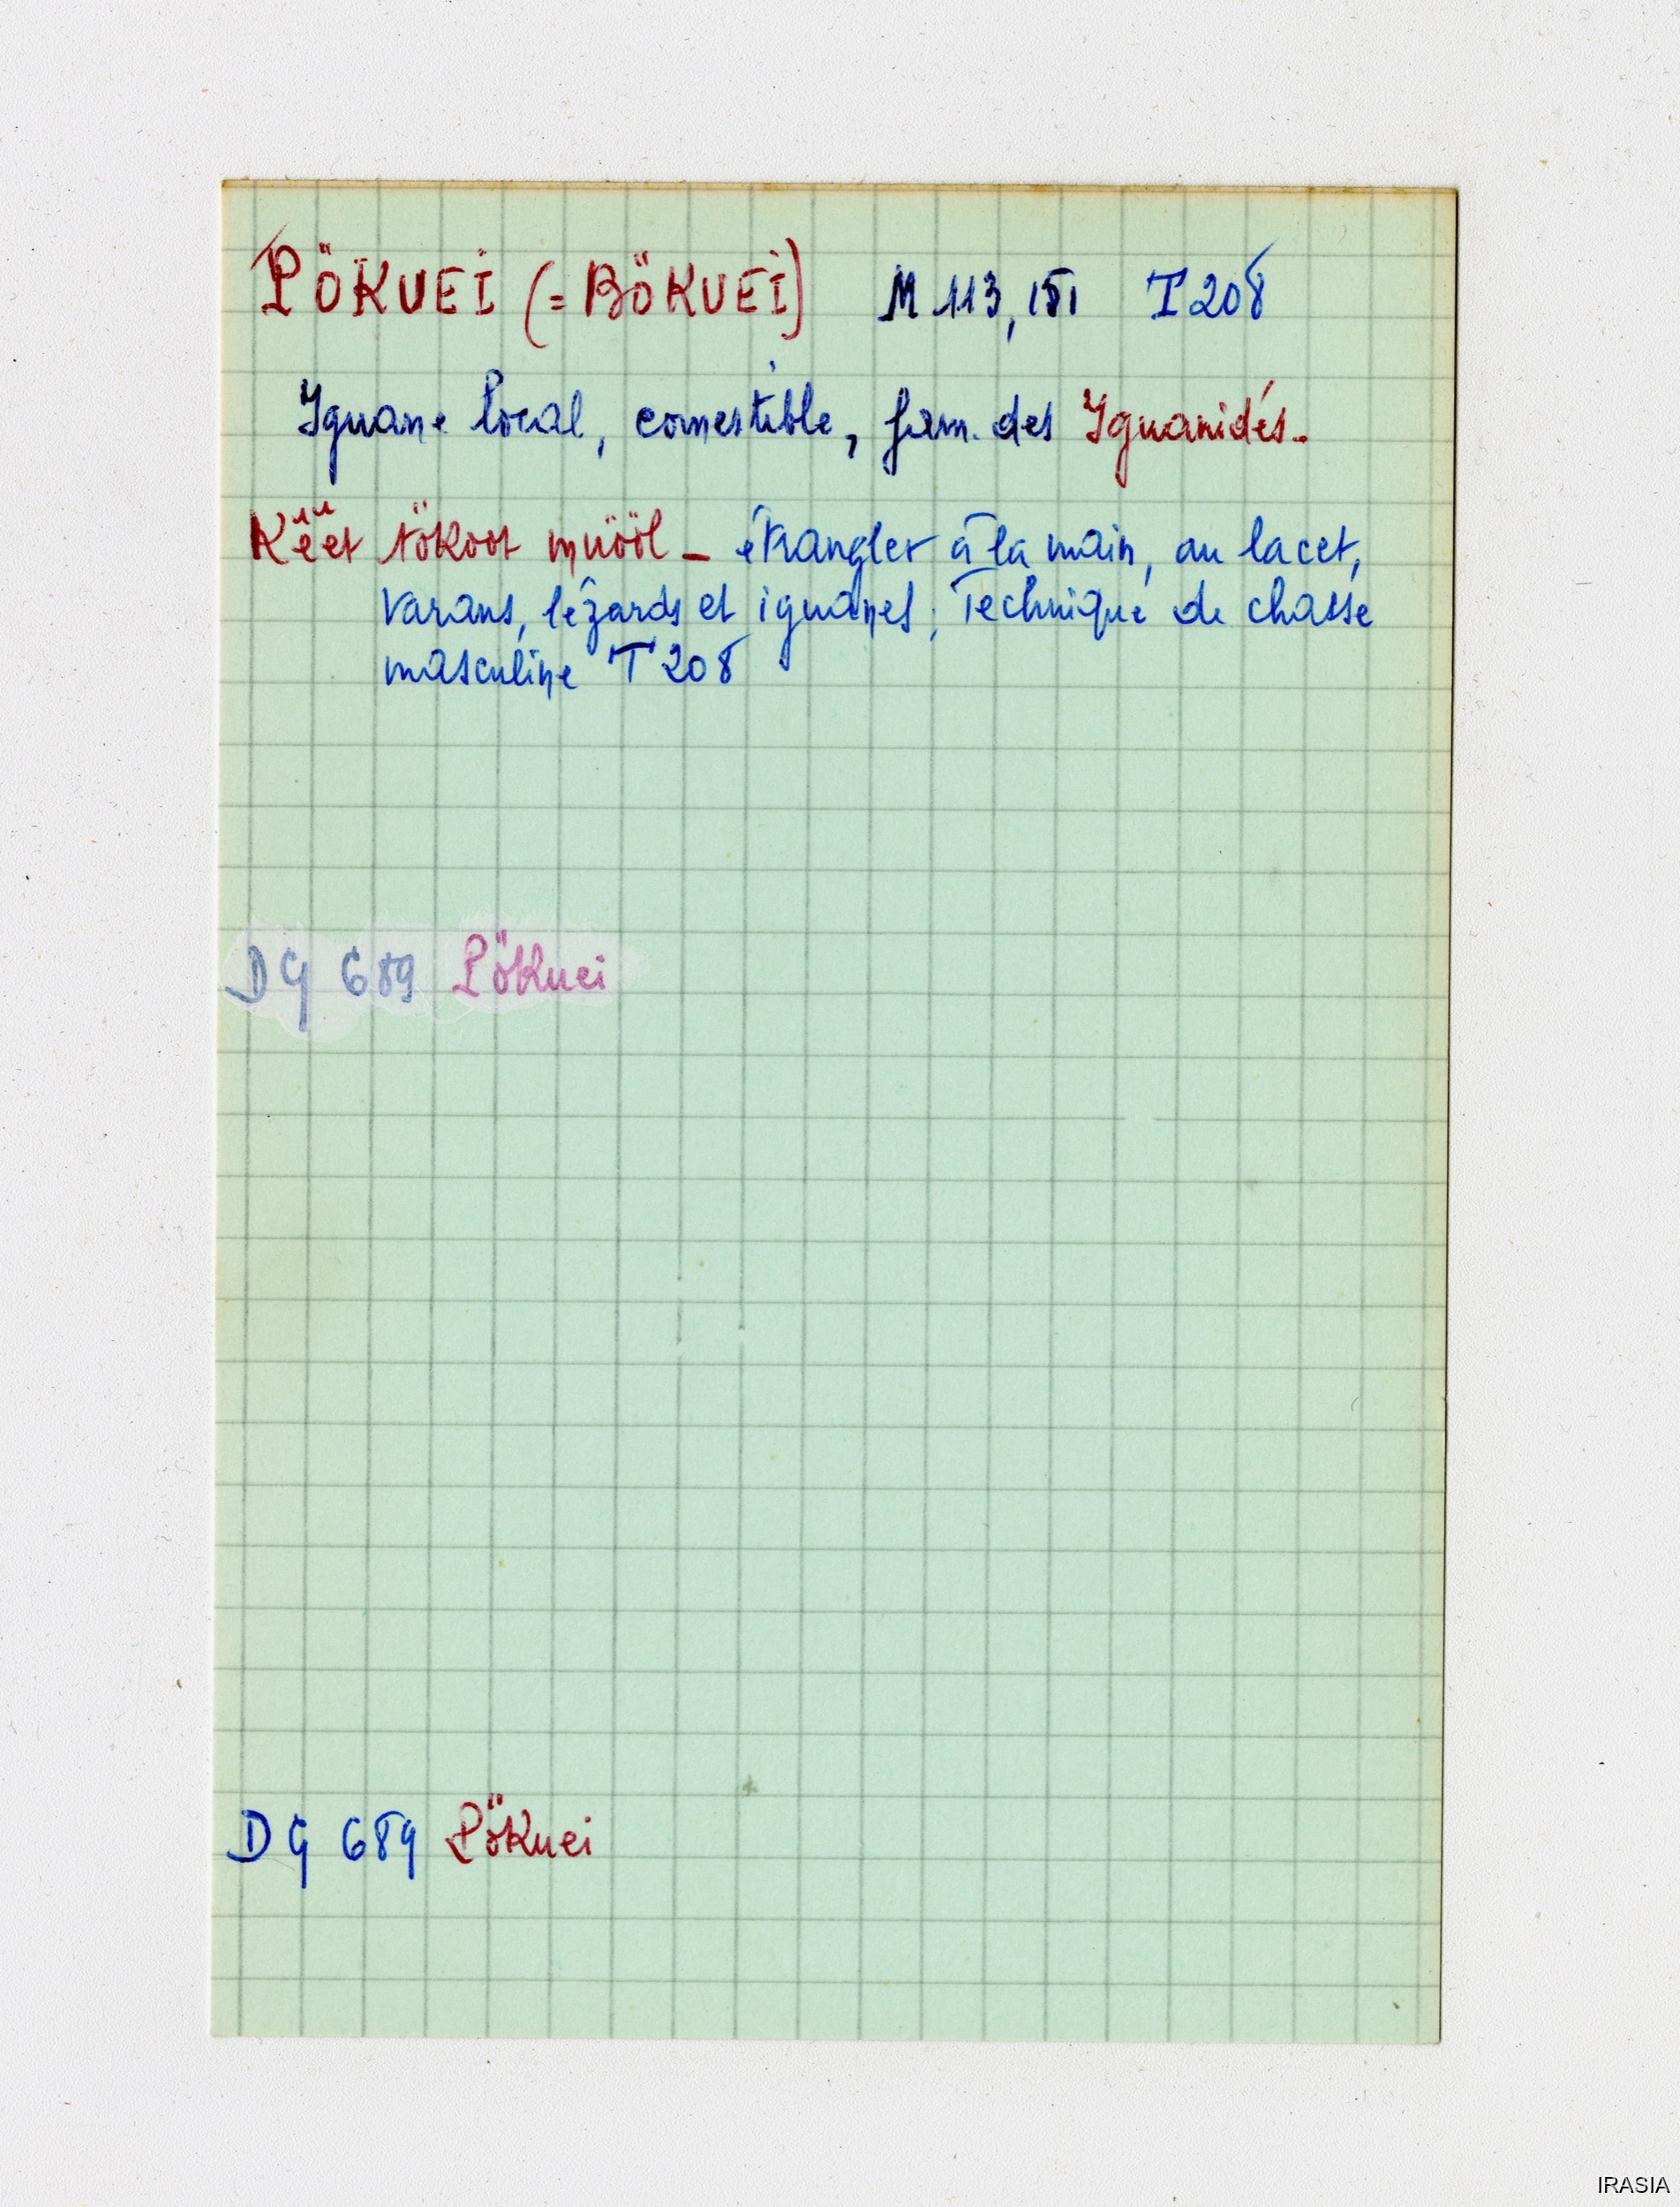 PÖKUEI (= BÖKUEI) M 113, 181 T 208
Iguane local, comestible, fam. des Iguanidés.
Kĕĕt tökoot müööl – étrangler à la main, au lacet,
varans, lézards et iguanes ; Technique de chasse
masculine T 208
DG 689 Pökuei
DG 689 Pökuei
IRASIA